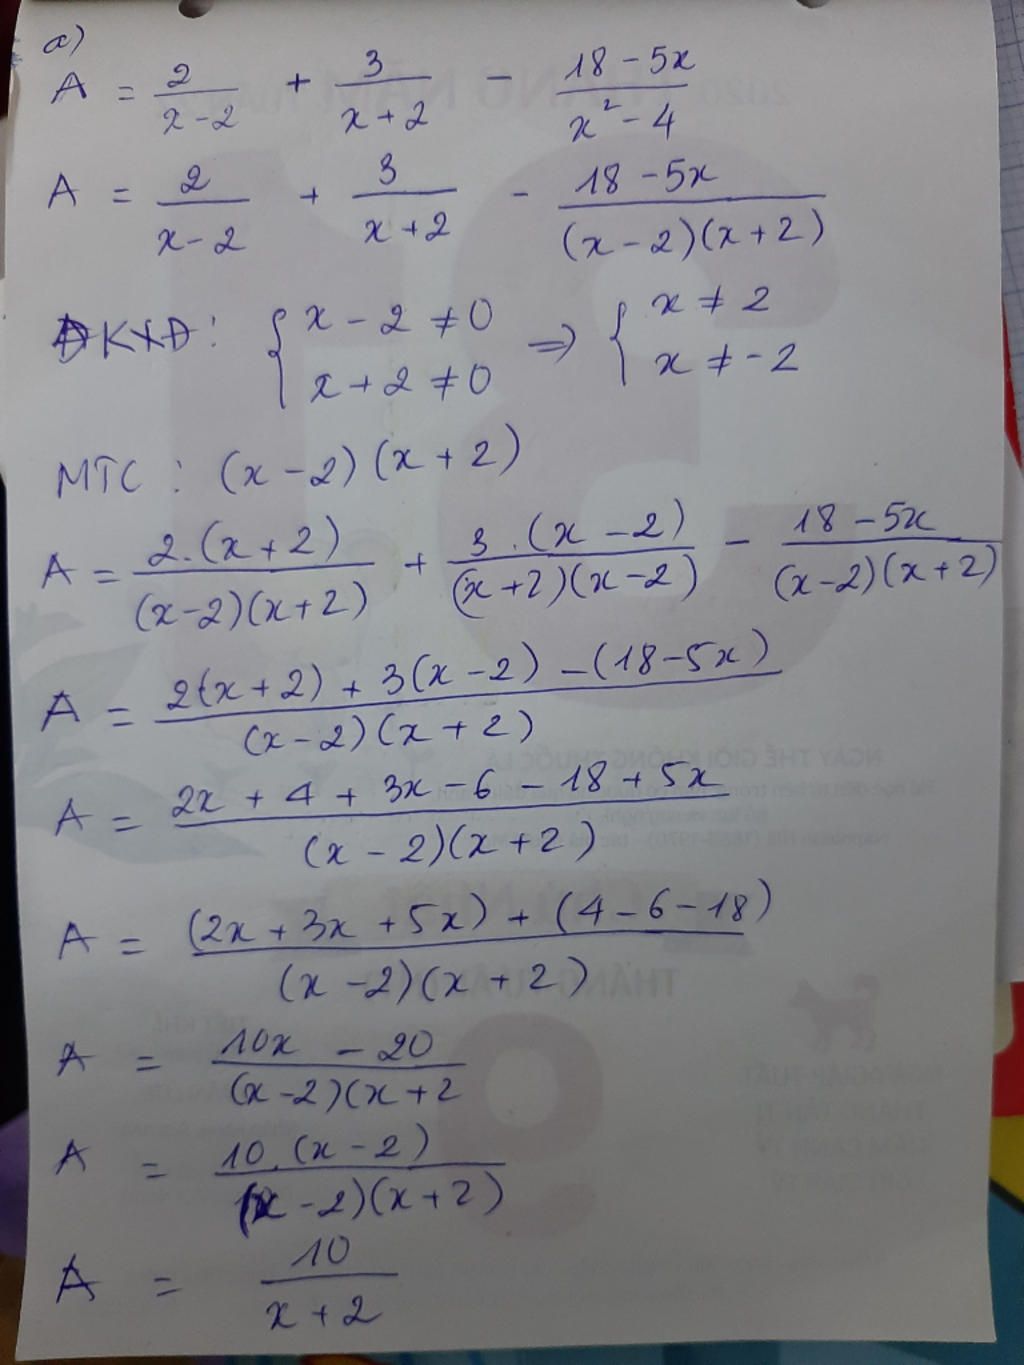 a)
A = 2/(x-2) + 3/(x+2) - (18-5x)/(x²-4)
A = 2/(x-2) + 3/(x+2) - (18-5x)/((x-2)(x+2))
ĐKXĐ: { x-2 ≠ 0 ⇒ { x ≠ 2
x+2 ≠ 0 x ≠ -2
MTC : (x-2)(x+2)
A = 2.(x+2)/((x-2)(x+2)) + 3.(x-2)/((x+2)(x-2)) - (18-5x)/((x-2)(x+2))
A = (2(x+2) + 3(x-2) - (18-5x))/((x-2)(x+2))
A = (2x + 4 + 3x - 6 - 18 + 5x)/((x-2)(x+2))
A = ((2x+3x+5x) + (4-6-18))/((x-2)(x+2))
A = (10x - 20)/((x-2)(x+2
A = 10.(x-2)/((x-2)(x+2))
A = 10/(x+2)